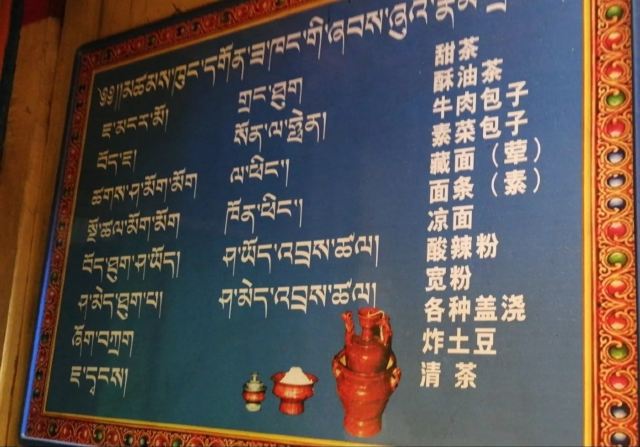 ༄༅།།མཚམས་ཁུང་དགོན་ཟ་ཁང་གི་ཞབས་ཞུའི་
ཇ་མངར་མོ།
བོད་ཇ།
ཚགས་ཤ་མོག་མོག
སྔོ་ཚལ་མོག་མོག
བོད་ཐུག་ཤ་ཡོད།
ཤ་མེད་ཐུག་པ།
ཞོག་བཀྲག
ཇ་དྭངས།
གྲང་ཐུག
སོན་ལ་ལྷེན།
ལ་ཕིང་།
ཁོན་ཕིང་།
ཤ་ཡོད་འབྲས་ཚལ།
ཤ་མེད་འབྲས་ཚལ།
甜茶
酥油茶
牛肉包子
素菜包子
藏面（荤）
面条（素）
凉面
酸辣粉
宽粉
各种盖浇
炸土豆
清茶